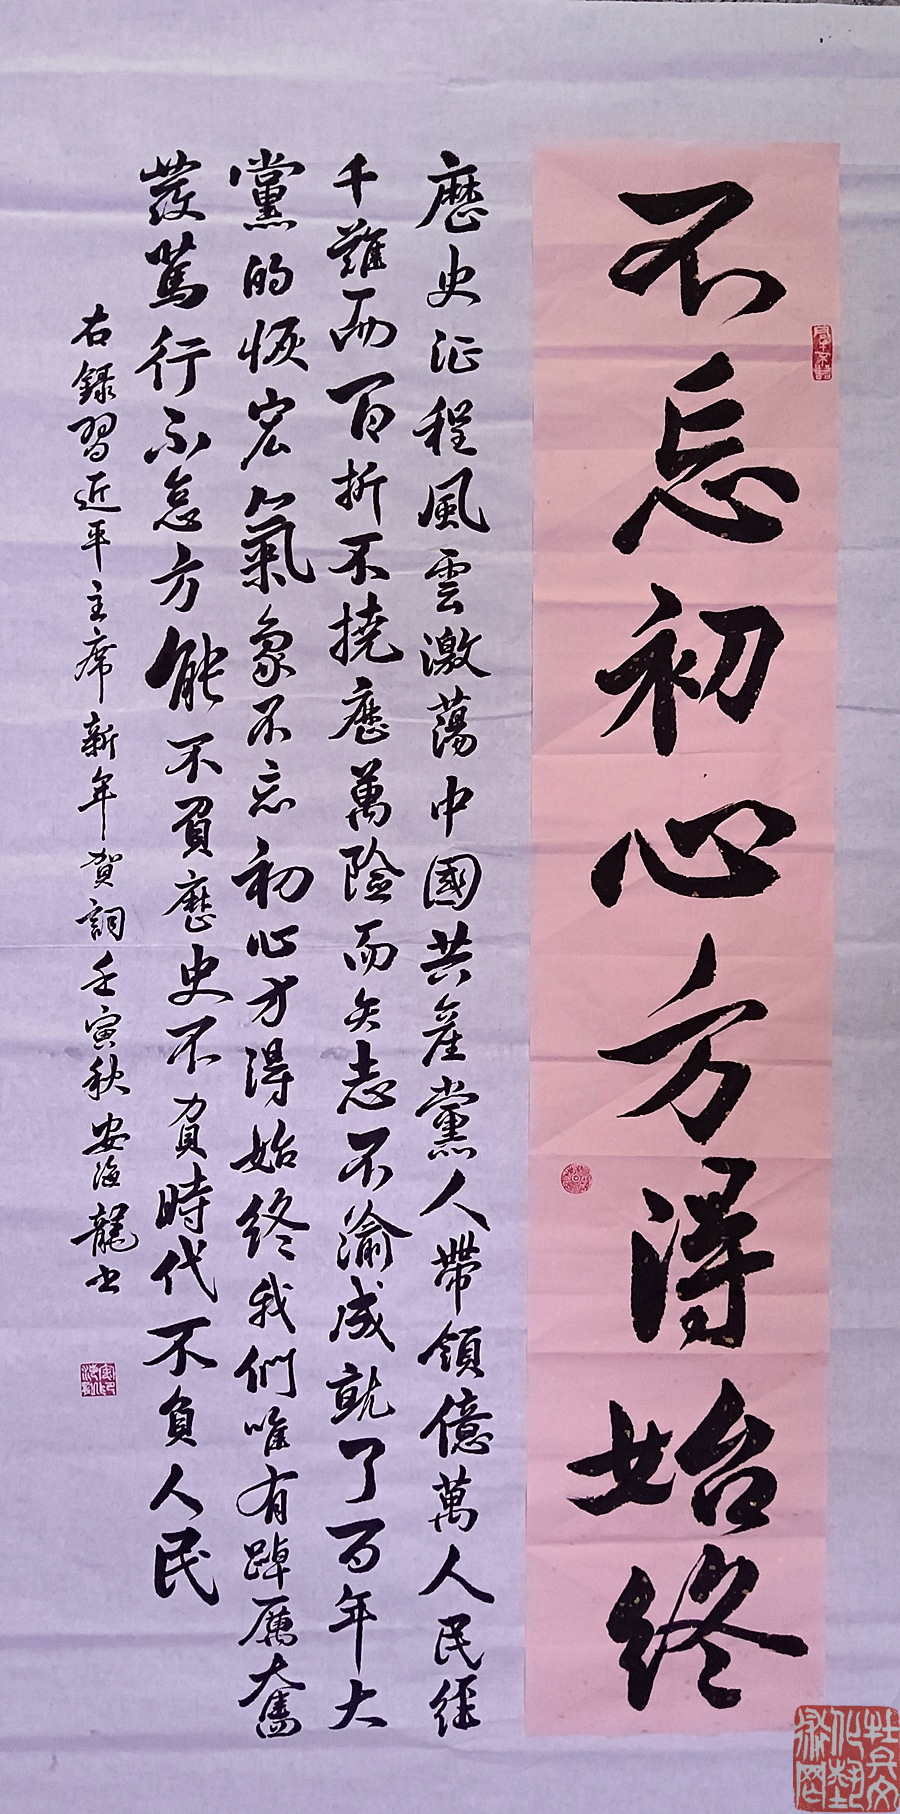 不忘初心方得始終
歷史征程風雲激蕩中國共產黨人帶領億萬人民經
千難而百折不撓歷萬險而矢志不渝成就了百年大
黨的恢宏氣象不忘初心方得始終我們唯有踔厲奮
發篤行不怠方能不負歷史不負時代不負人民
右録習近平主席新年賀詞壬寅秋安海龍書